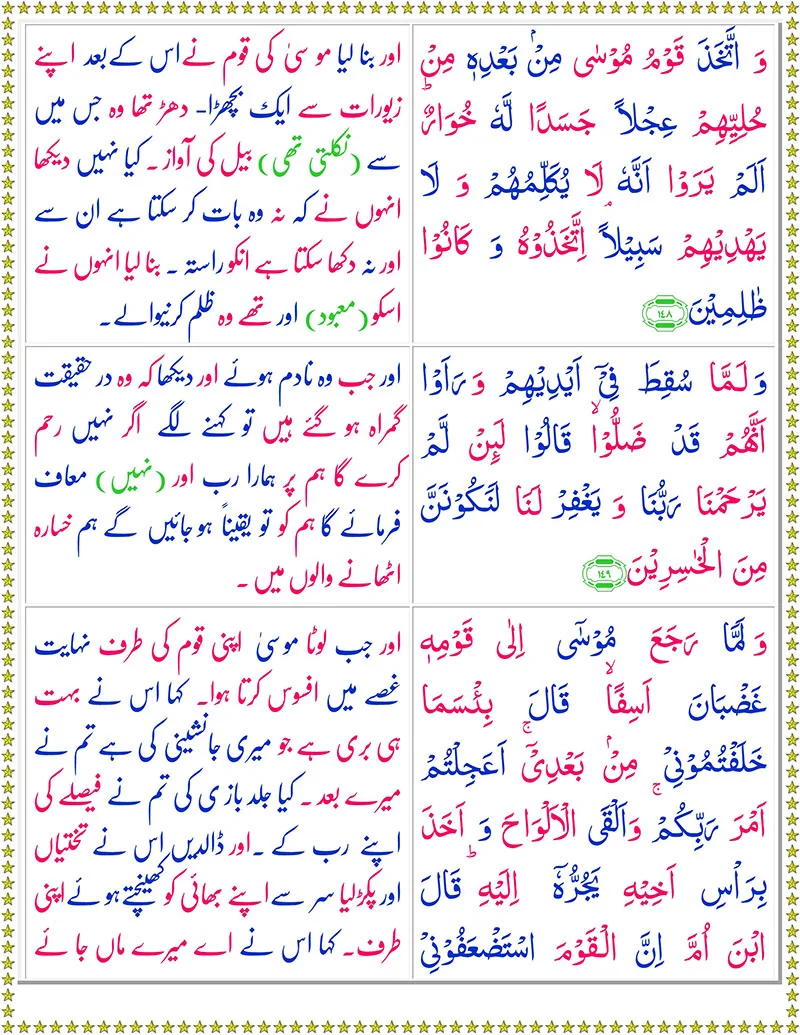 وَ اتَّخَذَ قَوْمُ مُوْسٰى مِنْۢ بَعْدِهٖ مِنْ
حُلِيِّهِمْ عِجْلاً جَسَدًا لَّهٗ خُوَارٌؕ
اَلَمْ يَرَوْا اَنَّهٗ لَا يُكَلِّمُهُمْ وَ لَا
يَهْدِيْهِمْ سَبِيْلاًۘ اِتَّخَذُوْهُ وَ كَانُوْا
ظٰلِمِيْنَ ١٤٨
اور بنا لیا موسیٰ کی قوم نے اس کے بعد اپنے
زیورات سے ایک بچھڑا- دھڑ تھا وہ جس میں
سے (نکلتی تھی) بیل کی آواز ۔ کیا نہیں دیکھا
انہوں نے کہ نہ وہ بات کر سکتا ہے ان سے
اور نہ دکھا سکتا ہے انکو راستہ ۔ بنا لیا انہوں نے
اسکو (معبود) اور تھے وہ ظلم کرنیوالے۔
وَ لَمَّا سُقِطَ فِيْٓ اَيْدِيْهِمْ وَ رَاَوْا
اَنَّهُمْ قَدْ ضَلُّوْاۙ قَالُوْا لَئِنْ لَّمْ
يَرْحَمْنَا رَبُّنَا وَ يَغْفِرْ لَنَا لَنَكُوْنَنَّ
مِنَ الْخٰسِرِيْنَ ١٤٩
اور جب وہ نادم ہوئے اور دیکھا کہ وہ در حقیقت
گمراہ ہو گئے ہیں تو کہنے لگے اگر نہیں رحم
کرے گا ہم پر ہمارا رب اور (نہیں) معاف
فرمائے گا ہم کو تو یقیناً ہو جائیں گے ہم خسارہ
اٹھانے والوں میں ۔
وَ لَمَّا رَجَعَ مُوْسٰٓى اِلٰى قَوْمِهٖ
غَضْبَانَ اَسِفًاۙ قَالَ بِئْسَمَا
خَلَفْتُمُوْنِيْ مِنْۢ بَعْدِيْۚ اَعَجِلْتُمْ
اَمْرَ رَبِّكُمْۚ وَ اَلْقَى الْاَلْوَاحَ وَ اَخَذَ
بِرَاْسِ اَخِيْهِ يَجُرُّهٗٓ اِلَيْهِؕ قَالَ
ابْنَ اُمَّ اِنَّ الْقَوْمَ اسْتَضْعَفُوْنِيْ
اور جب لوٹا موسیٰ اپنی قوم کی طرف نہایت
غصے میں افسوس کرتا ہوا۔ کہا اس نے بہت
ہی بری ہے جو میری جانشینی کی ہے تم نے
میرے بعد ۔ کیا جلد بازی کی تم نے فیصلے کی
اپنے رب کے ۔اور ڈالدیں اس نے تختیاں
اور پکڑلیا سر سے اپنے بھائی کو کھینچتے ہوئے اپنی
طرف۔ کہا اس نے اے میرے ماں جائے